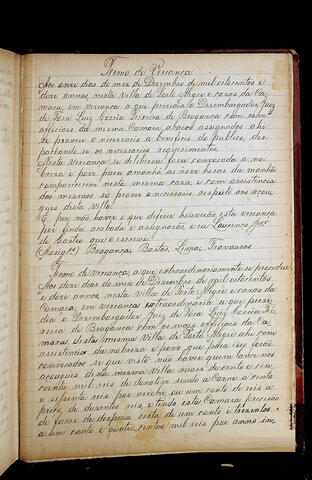 Termo de Vereança
Aos onze dias do mez de Dezembro de mil oitocentos e
doze annos, nesta Villa de Porto Alegre e cazas da Ca-
mara, em vereança a que presidio o Dezembargador Juiz
de Fóra Luiz Corrêa Teixeira de Bragança com os mais
officiaes da mesma Camara, abaixo assignados ahi
se proveu o necessario a beneficio do publico, des-
pachando se os necessarios requirimentos.
Nesta Vereança se deliberou fosse convocada a no-
breza e povo para amanhã as nove horas da manhã
comparecerem nesta mesma caza, e com assistencia
dos mesmos se prover o necessario, respeito aos açou-
gues desta villa.
E por não haver o que diferir houverão esta vereança
por finda, acabada e assignárão, e eu Lourenço Jor
de Castro que o escrevi.
(Assigdos) Bragança, Bastos, Lima, Travassos
Termo de vereança, a que extraordinariamente se procedeu
Aos doze dias do mez de Dezembro de mil oitocentos
e doze annos nesta Villa de Porto Alegre e cazas da
Camara, em vereança extraordinaria a que presi-
dio o Dezembargador Juiz de Fóra Luiz Corrêa Tei-
xeira de Bragança com os mais officiaes da Ca-
mara desta mesma Villa de Porto Alegre ahi com
assistencia da nobreza e povo que para isso forão
convocados se que visto não haver quem lance nos
açougues desta mesma Villa mais de cento e cin-
coenta mil reis de donativo sendo a Carne a cento
e sessenta reis por arroba ou um conto de reis a
preço de duzentos reis, e tendo esta Camara precisão
de fazer de despeza certa de um conto e trezentos
a um conto e quatro centos mil reis por anno im